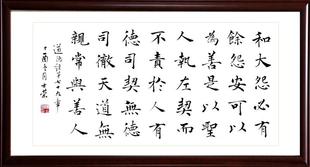 和大怨必有
餘怨安可以
為善是以聖
人執左契而
不責於人有
德司契無德
司徹天道無
親常與善人
道德經第七十九章
丁酉冬月